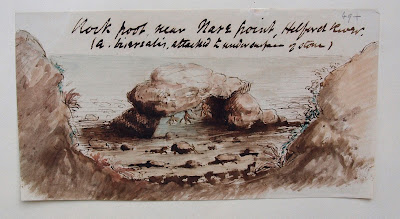 Rock pool near Nare point, Helford River.
(A. bursalis, attached to undersurface of stone)